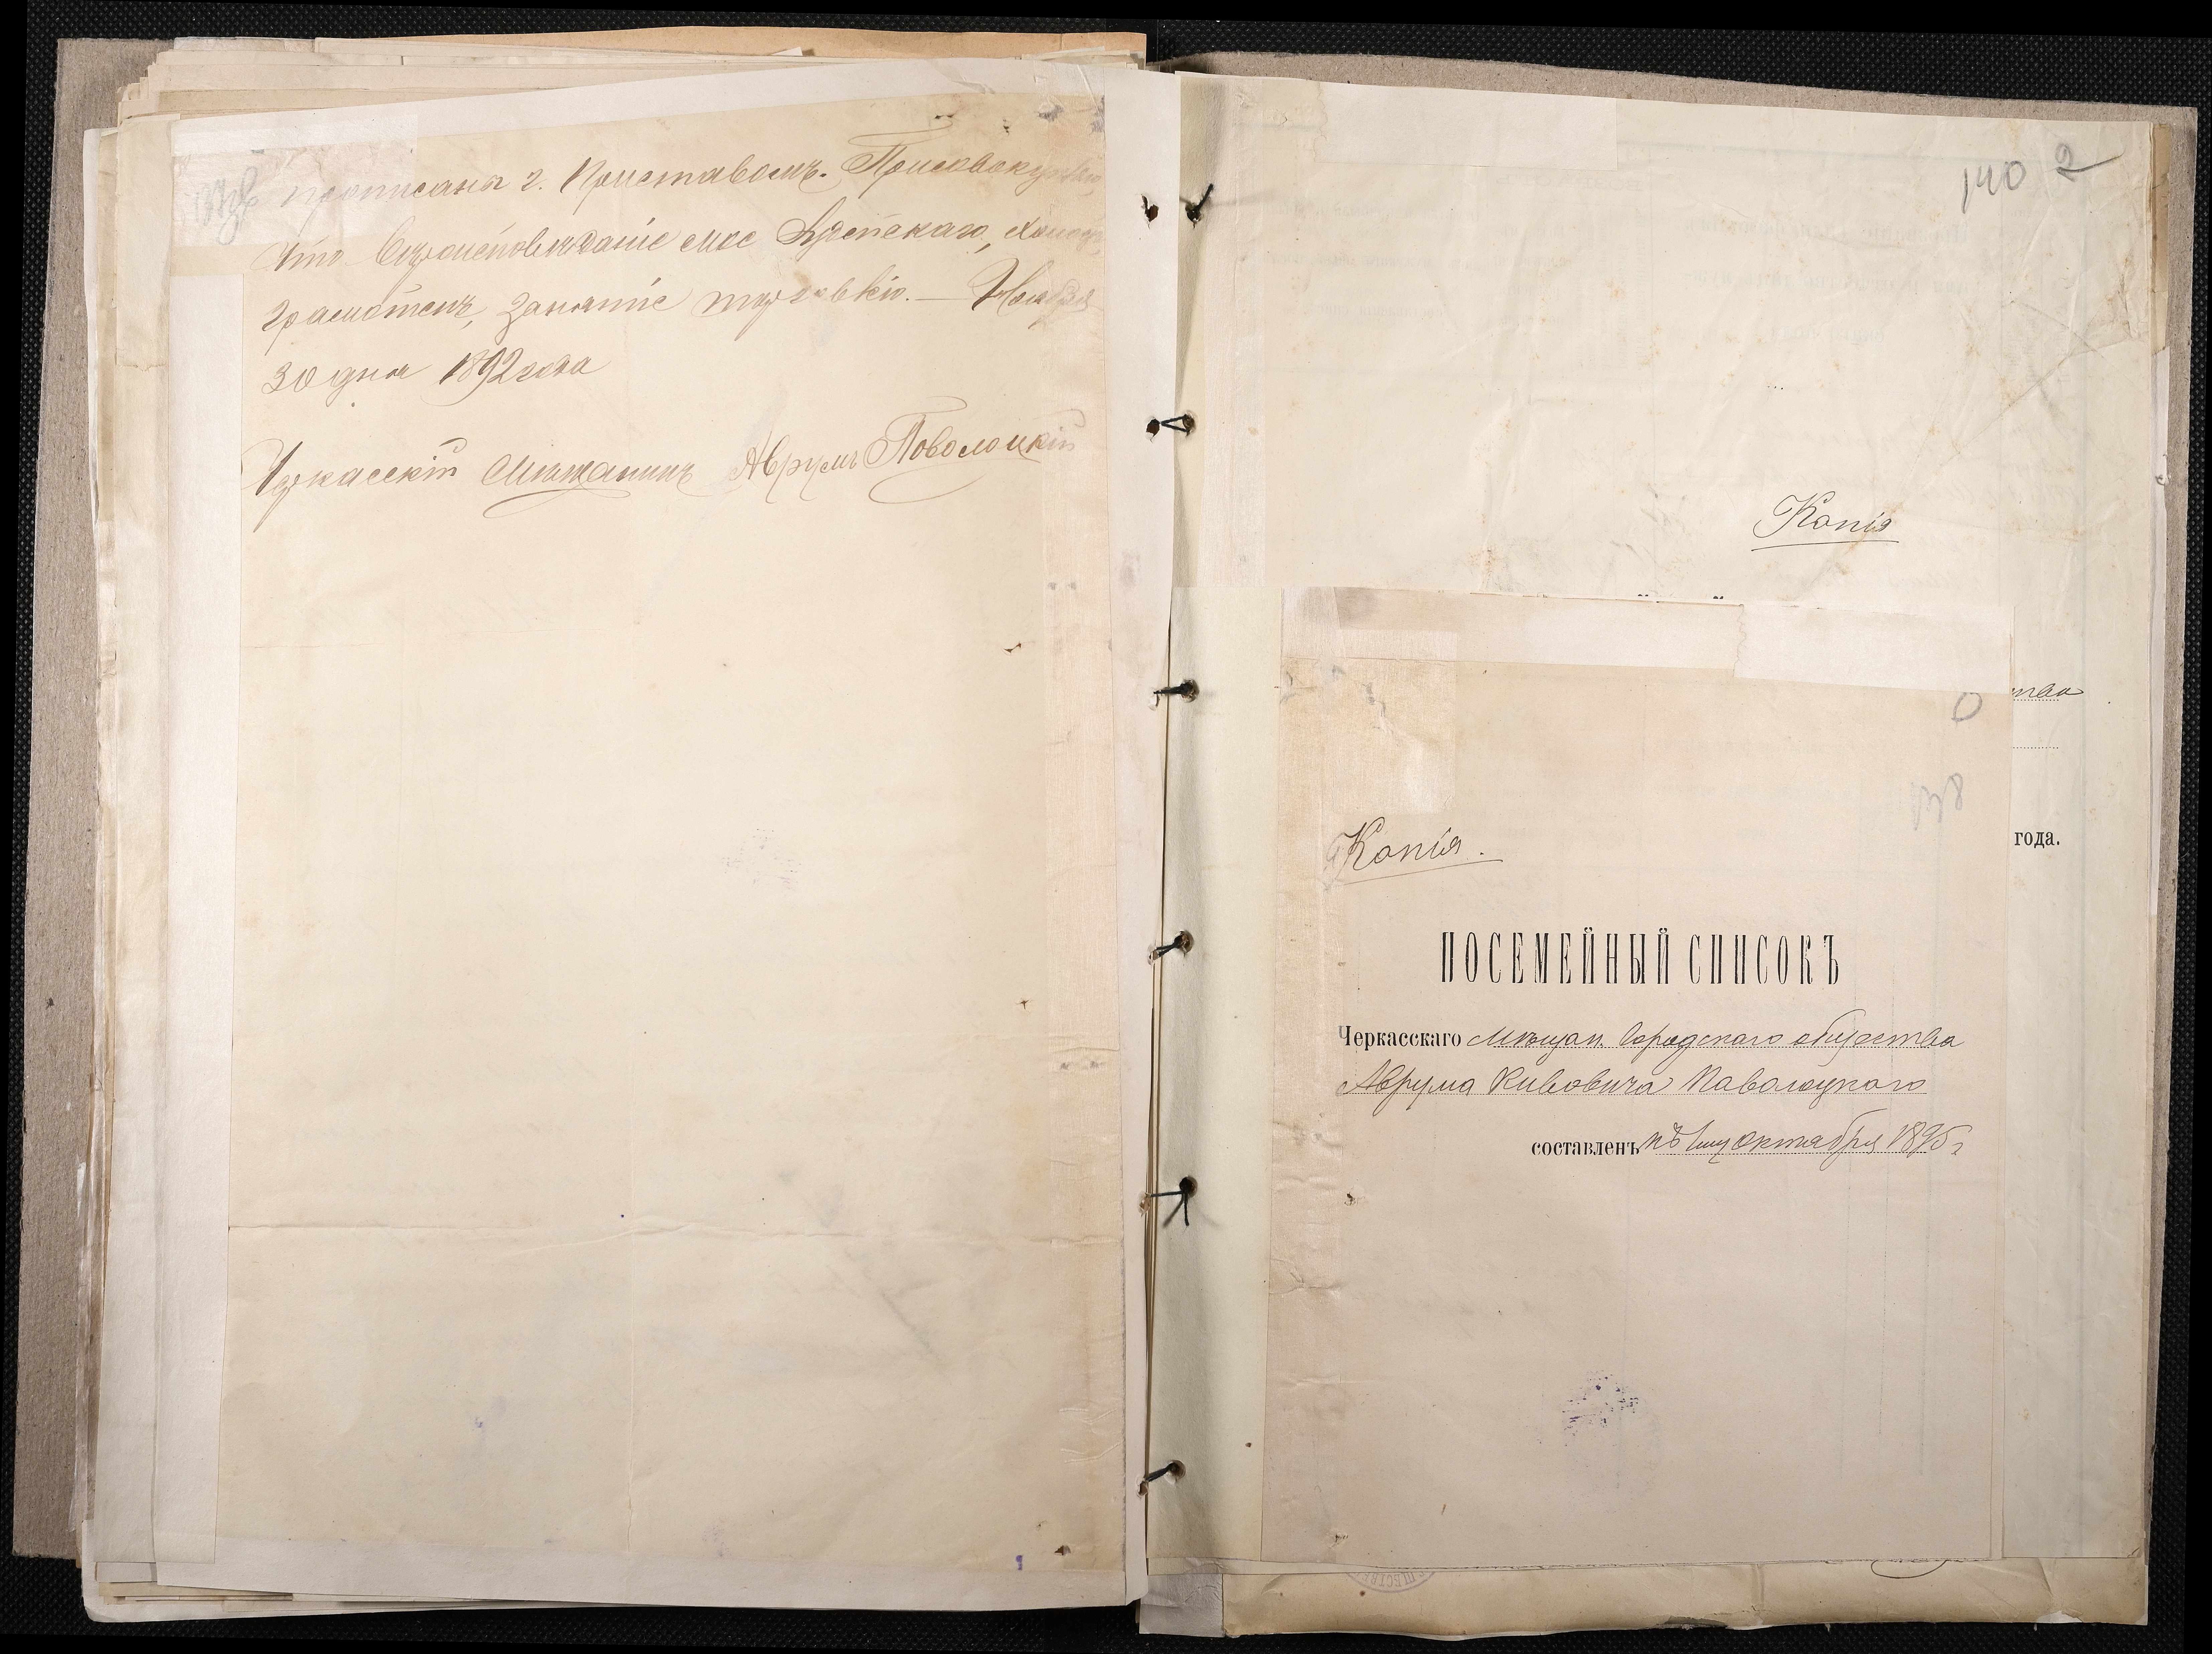 прописаны г. Приставомъ. Присовокупляю
что Вѣроисповѣданіе мое Еврейскаго,
грамотенъ, занятіе торговлю. — Ноября
30 дня 1892 года
Черкасскій Мѣщанинъ Аврумъ Поволоцкій
140 2
Копія
тва
года.
138
Копія.
ПОСЕМЕЙНЫЙ СПИСОКЪ
Черкасскаго Мѣщан. Городскаго общества
Аврума Кивовича Паволоцкаго
составленъ къ 1му Октября 1895 г